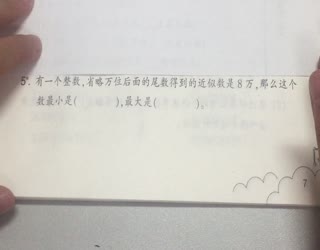 5. 有一个整数,省略万位后面的尾数得到的近似数是8万,那么这个
数最小是( ),最大是( )。
7